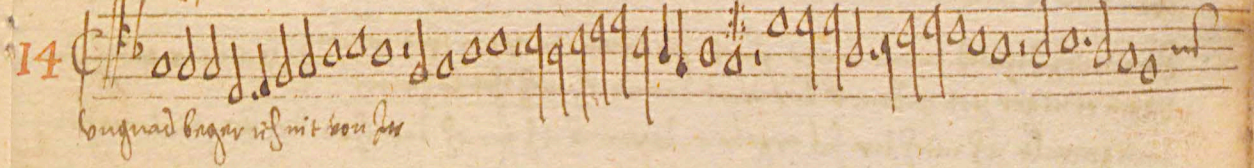 14
Ungnad beger ich nit von Ir